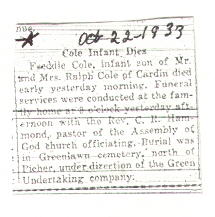 Oct-22-1933
Cole Infant Dies
Feeddie Cole, infant son of Mr.
and Mrs. Ralph Cole of Cardin died
early yesterday morning. Funeral
services were conducted at the fam-
ily home at o'clock yesterday aft-
ernoon with the Rev. C. R. Ham-
mond, pastor of the Assembly of
God church officiating. Burial was
in Greenlawn cemetery, north of
Picher, under direction of the Green
Undertaking company.